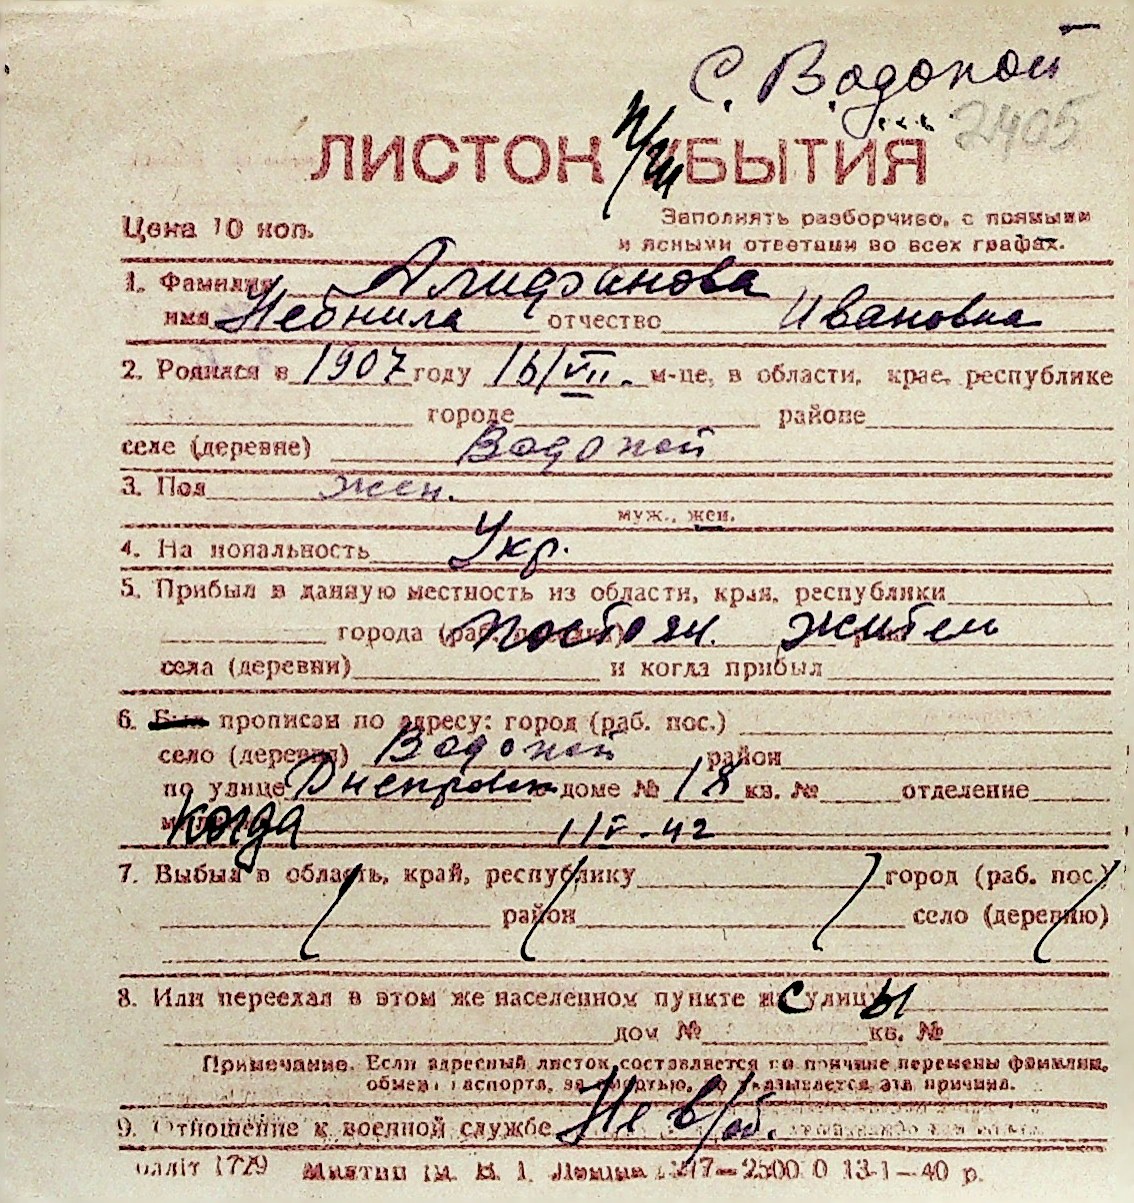 С. Водопой
2405
ЛИСТОК УБЫТИЯ
Цена 10 коп.
Заполнять разборчиво, с прямыми
и ясными ответами во всех графах.
1. Фамилия Алифанова
имя Небнила отчество Ивановна
2. Родился в 1907 году 16/VII. м-це, в области, крае, республике
городе районе
селе (деревне) Водопой
3. Пол жен.
муж., жен.
4. Национальность Укр.
5. Прибыл в данную местность из области, края, республики
города (раб. постоян. жител
села (деревни) и когда прибыл
6. Был прописан по адресу: город (раб. пос.)
село (деревня) Водопой район
по улице Днепровск доме № 18 кв. № отделение
Когда 1/V-42
7. Выбыл в область, край, республику город (раб. пос.)
район село (деревню)
8. Или переехал в этом же населенном пункте с улицы
дом № кв. №
Примечание. Если адресный листок составляется по причине перемены фамилии,
обмена паспорта, за смертью, то указывается эта причина.
9. Отношение к военной службе Не в/об.
Оплліт 1729 Миктип ім. В. І. Леніна 217—2500 0 13-1—40 р.